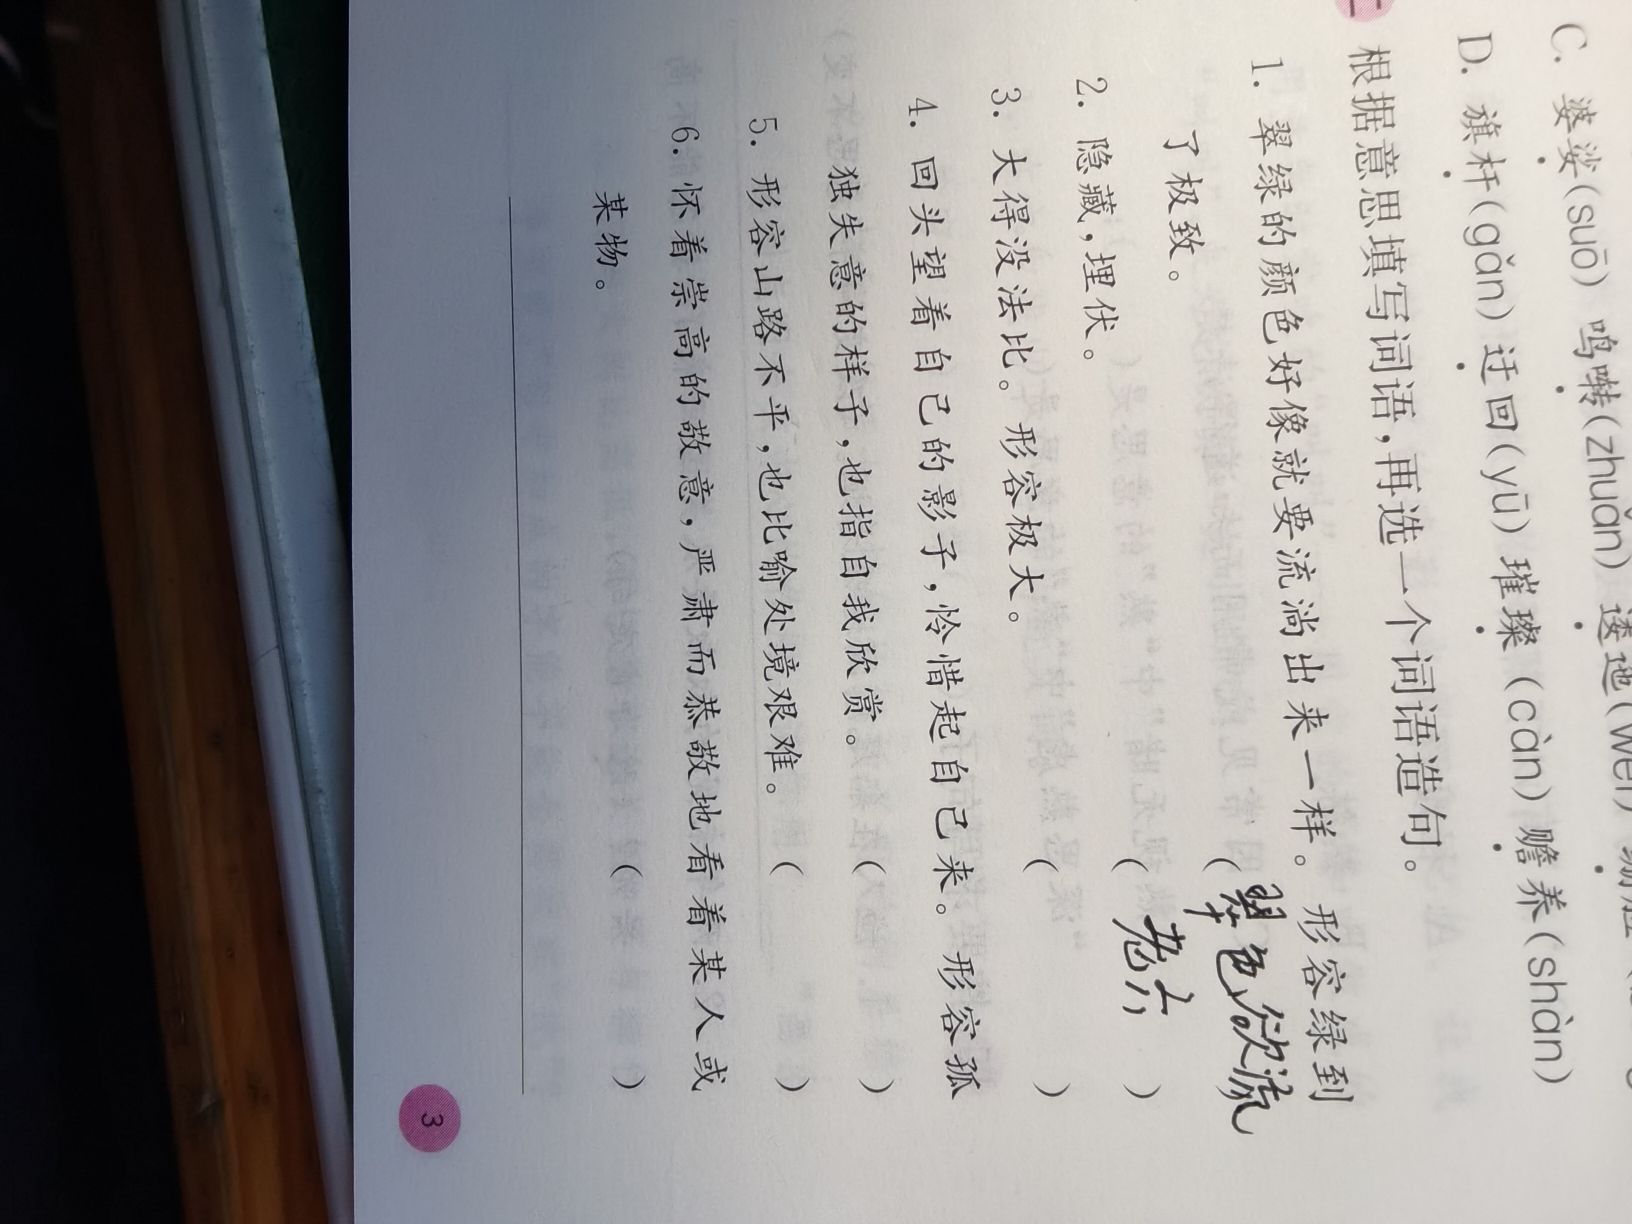 C. 婆娑(suō) 鸣啭(zhuǎn) 逶迤(wēi)
D. 旗杆(gǎn) 迂回(yū) 璀璨(càn) 赡养(shàn)
根据意思填写词语,再选一个词语造句。
1. 翠绿的颜色好像就要流淌出来一样。形容绿到
了极致。 (翠色欲流
2. 隐藏,埋伏。 ( )
3. 大得没法比。形容极大。 ( )
4. 回头望着自己的影子,怜惜起自己来。形容孤
独失意的样子,也指自我欣赏。 ( )
5. 形容山路不平,也比喻处境艰难。 ( )
6. 怀着崇高的敬意,严肃而恭敬地看着某人或
某物。 ( )
3